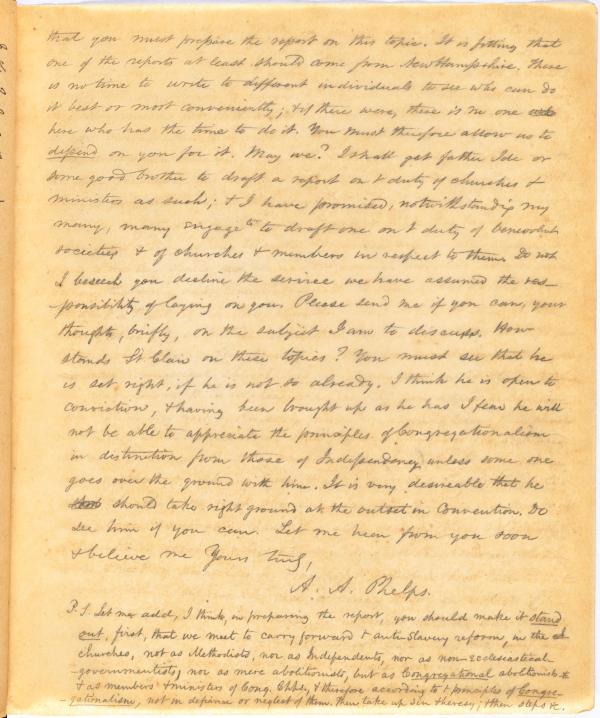 that you must prepare the report on this topic. It is fitting that
one of the reports at least should come from New Hampshire. There
is no time to write to different individuals to see who can do
it best or most conveniently; & if there were, there is no one
here who has the time to do it. You must therefore allow us to
depend on you for it. May we? I shall get father Ide or
some good brother to draft a report on t duty of churches &
ministers as such; & I have promised, notwithstanding my
many, many engagets to draft one on t duty of benevolent
societies & of churches & members in respect to them. Do not
I beseech you decline the service we have assumed the res-
-ponsibility of laying on you. Please send me if you can, your
thoughts, briefly, on the subject I am to discuss. How
stands St Clair on these topics? You must see that he
is set right, if he is not so already. I think he is open to
conviction, & having been brought up as he has I fear he will
not be able to appreciate the principles of Congregationalism
in distinction from those of Independency, unless some one
goes over the ground with him. It is very desireable that he
should take right ground at the outset in Convention. Do
see him if you can. Let me hear from you soon
& believe me Yours truly,
A. A. Phelps.
P.S. Let me add, I think, in preparing the report, you should make it stand
out, first, that we meet to carry forward t anti-slavery reform, in the
churches, not as Methodists, nor as Independents, nor as non-Ecclesiastical-
-governmentists, nor as mere abolitionists, but as Congregational abolitionists &
& as members & ministers of Cong. Chhs, & therefore according to t principles of Congre-
-gationalism, not in defiance or neglect of them. Then take up Sin theresy; & then steps &c.